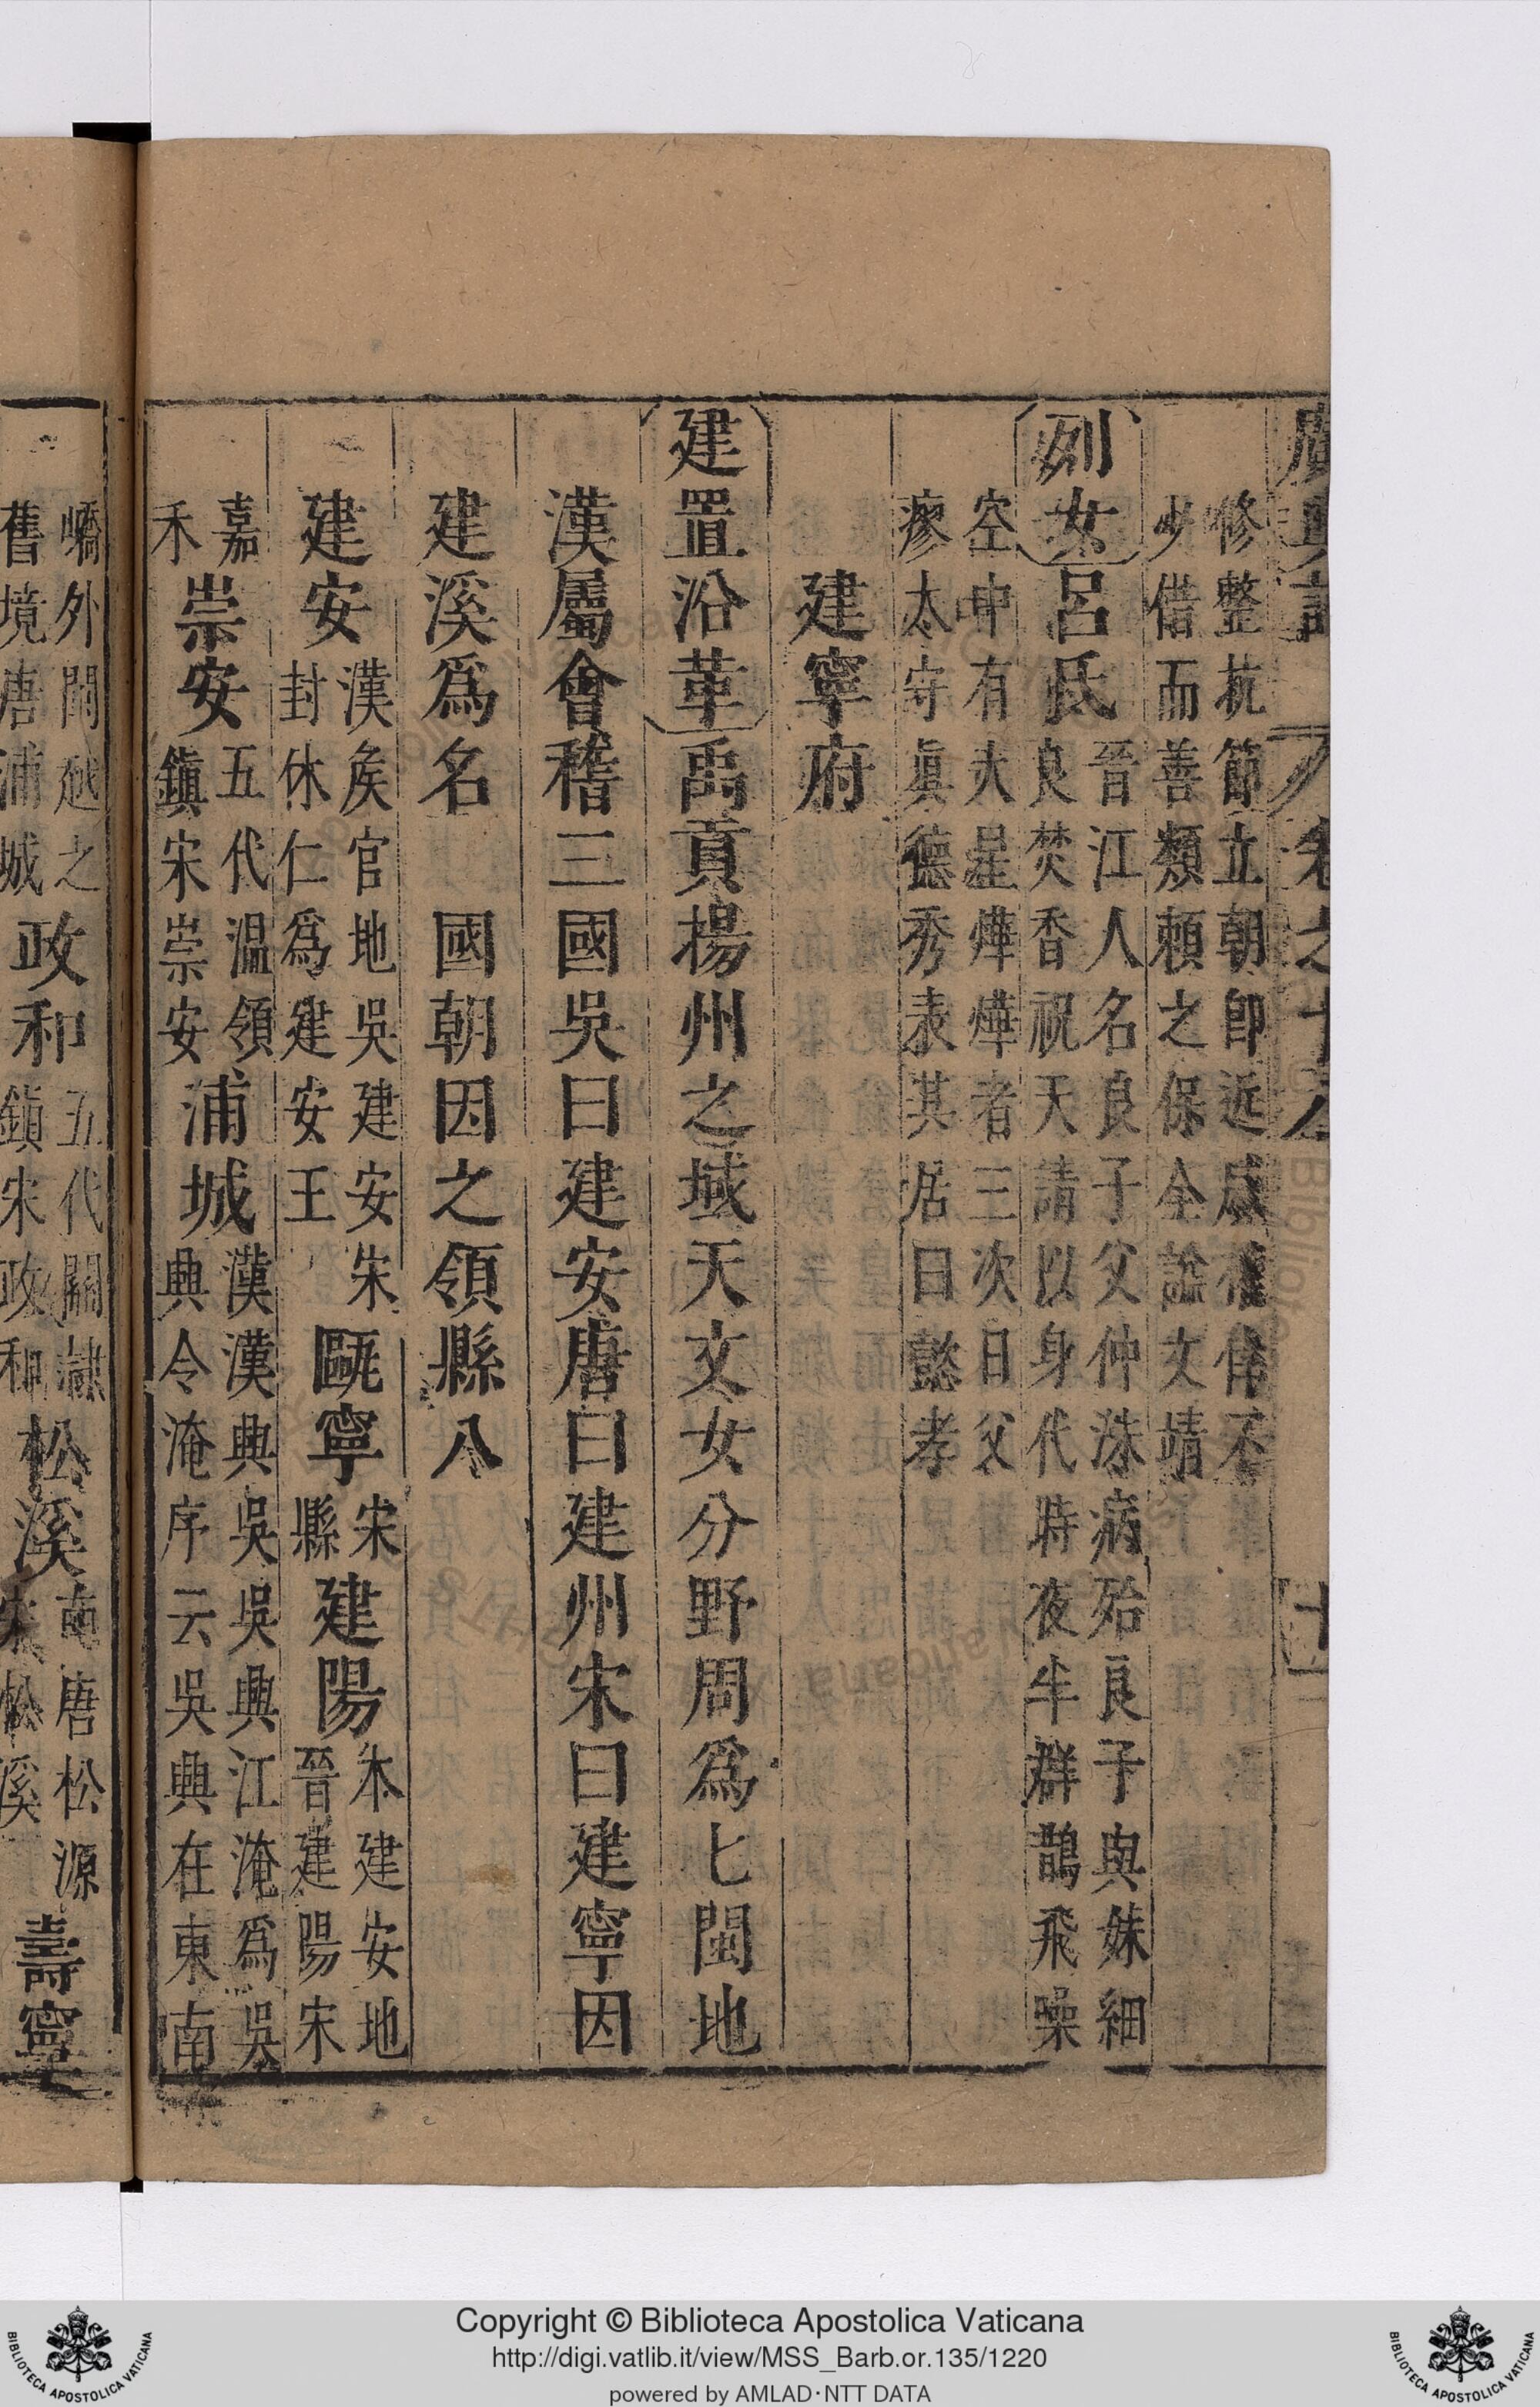 廣輿記 卷之十八 十
修整抗節立朝卽近戚權倖不
少借而善類賴之保全諡文靖
列女
呂氏
晉江人名良子父仲洙病殆良子與妹細
良焚香祝天請以身代時夜半群鵲飛噪
空中有大星燁燁者三次日父
瘳太守眞德秀表其居曰懿孝
建寧府
建置沿革 禹貢揚州之域天文女分野周爲七閩地
漢屬會稽三國吳曰建安唐曰建州宋曰建寧因
建溪爲名 國朝因之領縣八
建安
漢矦官地吳建安宋
封休仁爲建安王
甌寧
宋
縣
建陽
本建安地
晉建陽宋
嘉
禾
崇安
五代温領
鎮宋崇安
浦城
漢漢興吳吳興江淹爲吳
興令淹序云吳興在東南
嶠外閩越之
舊境唐浦城
政和
五代關隷
鎮宋政和
松溪
南唐松源
宋松溪
壽寧
Copyright © Biblioteca Apostolica Vaticana
http://digi.vatlib.it/view/MSS_Barb.or.135/1220
powered by AMLAD·NTT DATA
BIBLIOTECA APOSTOLICA VATICANA
BIBLIOTECA APOSTOLICA VATICANA